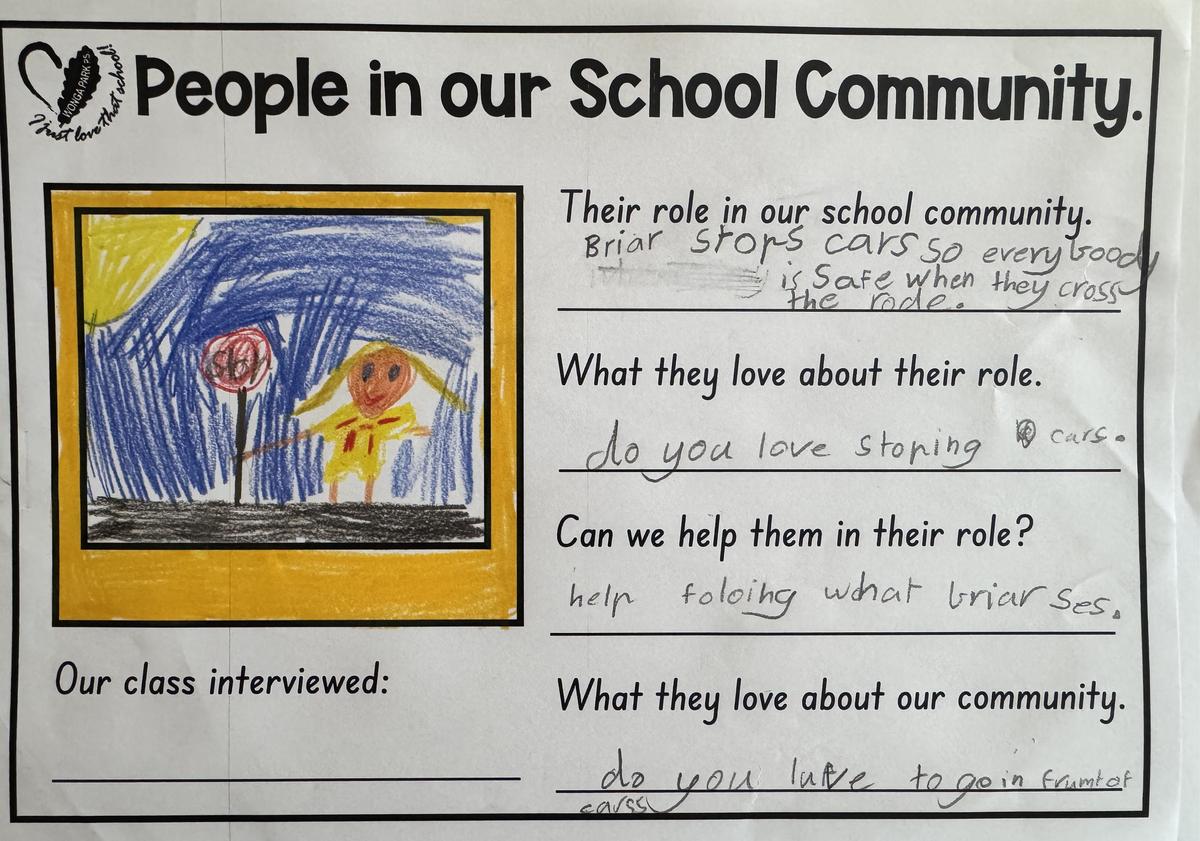 WONGA PARK PS
I just love that school!
People in our School Community.
Stop
Our class interviewed:
Their role in our school community.
Briar stops cars so everyboody
is Safe when they cross
the rode.
What they love about their role.
do you love stoping cars.
Can we help them in their role?
help foloing wdhat briar ses.
What they love about our community.
do you to go in frumt of
carss